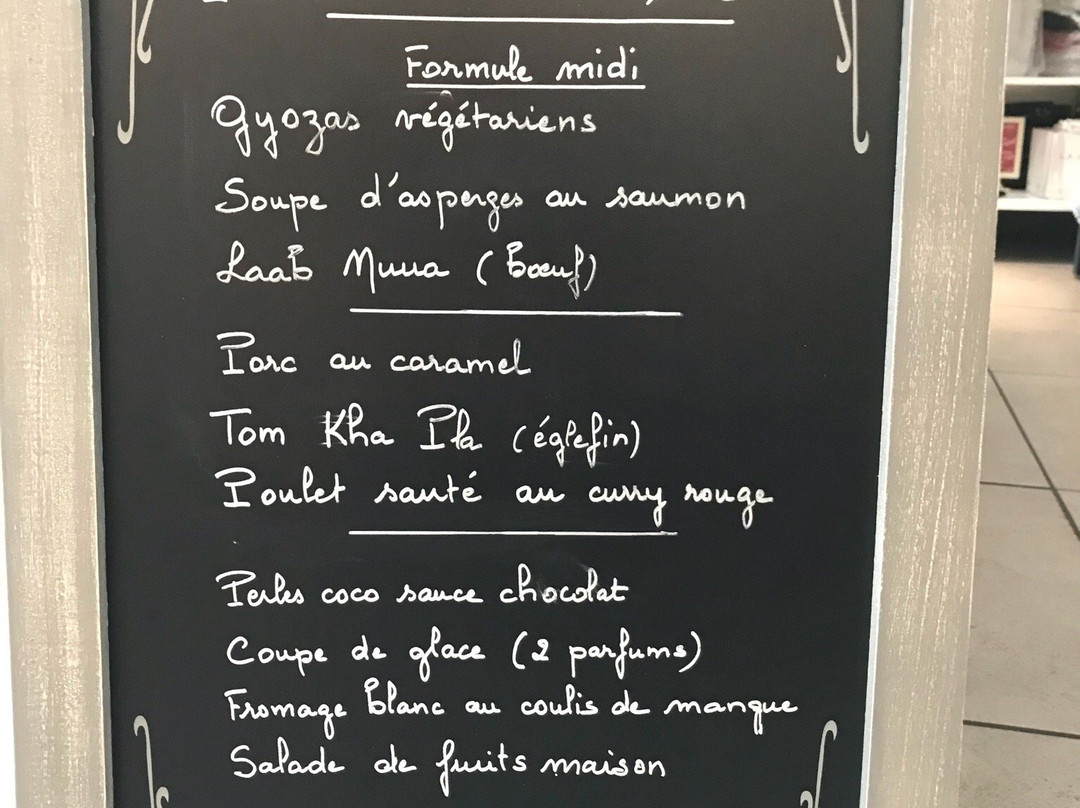 Formule midi
Gyozas végétariens
Soupe d'asperges au saumon
Laab Muua (Bœuf)
Porc au caramel
Tom Kha Pla (églefin)
Poulet sauté au curry rouge
Perles coco sauce chocolat
Coupe de glace (2 parfums)
Fromage blanc au coulis de mangue
Salade de fruits maison